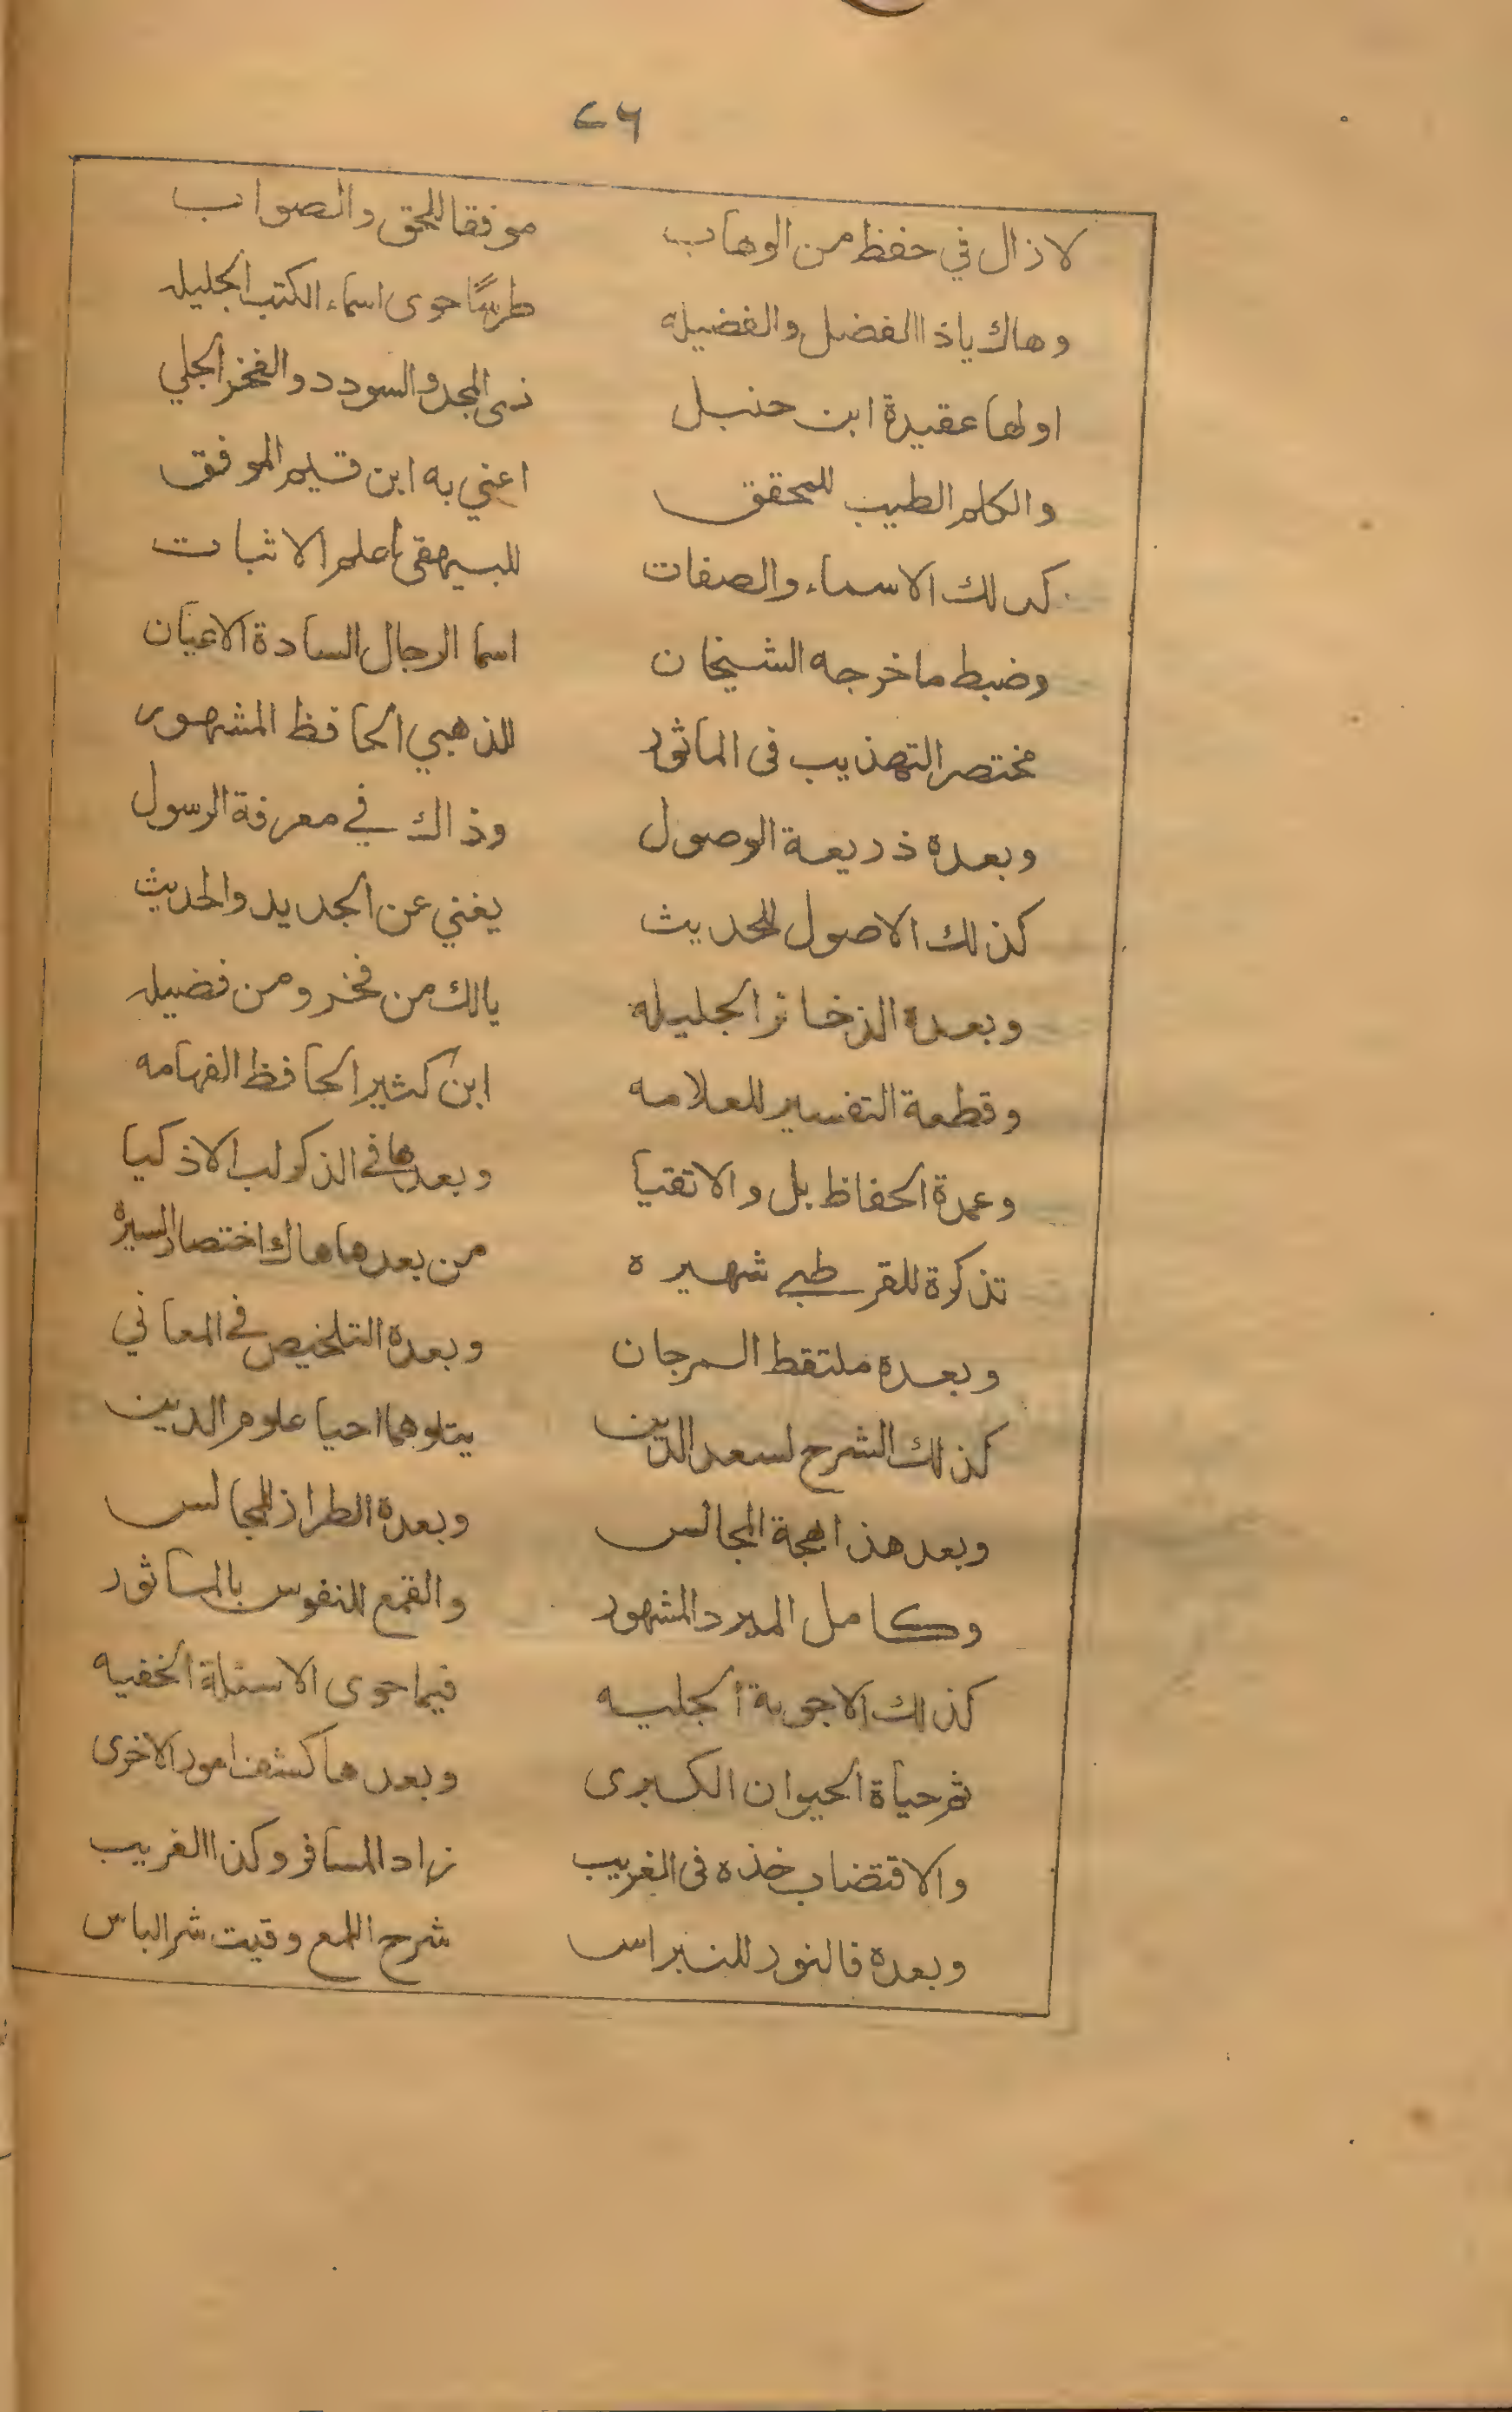 ٢٦
لازال في حفظ من الوهاب موفقا للحق والصواب
وهاك ياذا الفضل والفضيله طرسًا حوى اسماء الكتب الجليله
اولها عقيدة ابن حنبل ذى المجد والسودد والفخر الجلي
والكلم الطيب للمحقق اعني به ابن قيم الموفق
كذلك الاسماء والصفات للبيهقى اعلم الاثبات
وضبط ما خرجه الشيخان اسما الرجال السادة الاعيان
مختصر التهذيب فى الماثور للذهبي الحافظ المشهور
وبعده ذريعة الوصول وذاك في معرفة الرسول
كذلك الاصول للحديث يغني عن الجديد والحديث
وبعده الذخائر الجليله يالك من فخر ومن فضيله
وقطعة التفسير للعلامه ابن كثير الحافظ الفهامه
وعمدة الحفاظ بل والاتقيا وبعدها في الذكر لب الاذكيا
تذكرة للقرطبي شهيره من بعدها هاك اختصار السيره
وبعده ملتقط المرجان وبعده التلخيص في المعاني
كذلك الشرح لسعد الدين يتلوهما احيا علوم الدين
وبعد هذا بهجة المجالس وبعده الطراز للمجالس
وكامل المبرد المشهور والقمع للنفوس بالماثور
كذلك الاجوبة الجليه فيما حوى الاسئلة الخفيه
ثم حياة الحيوان الكبرى وبعدها كشف امور الاخرى
والاقتضاب خذه فى الغريب زاد المسافر وكذا الغريب
وبعده فالنور للنبراس شرح اللمع وقيت شر الباس